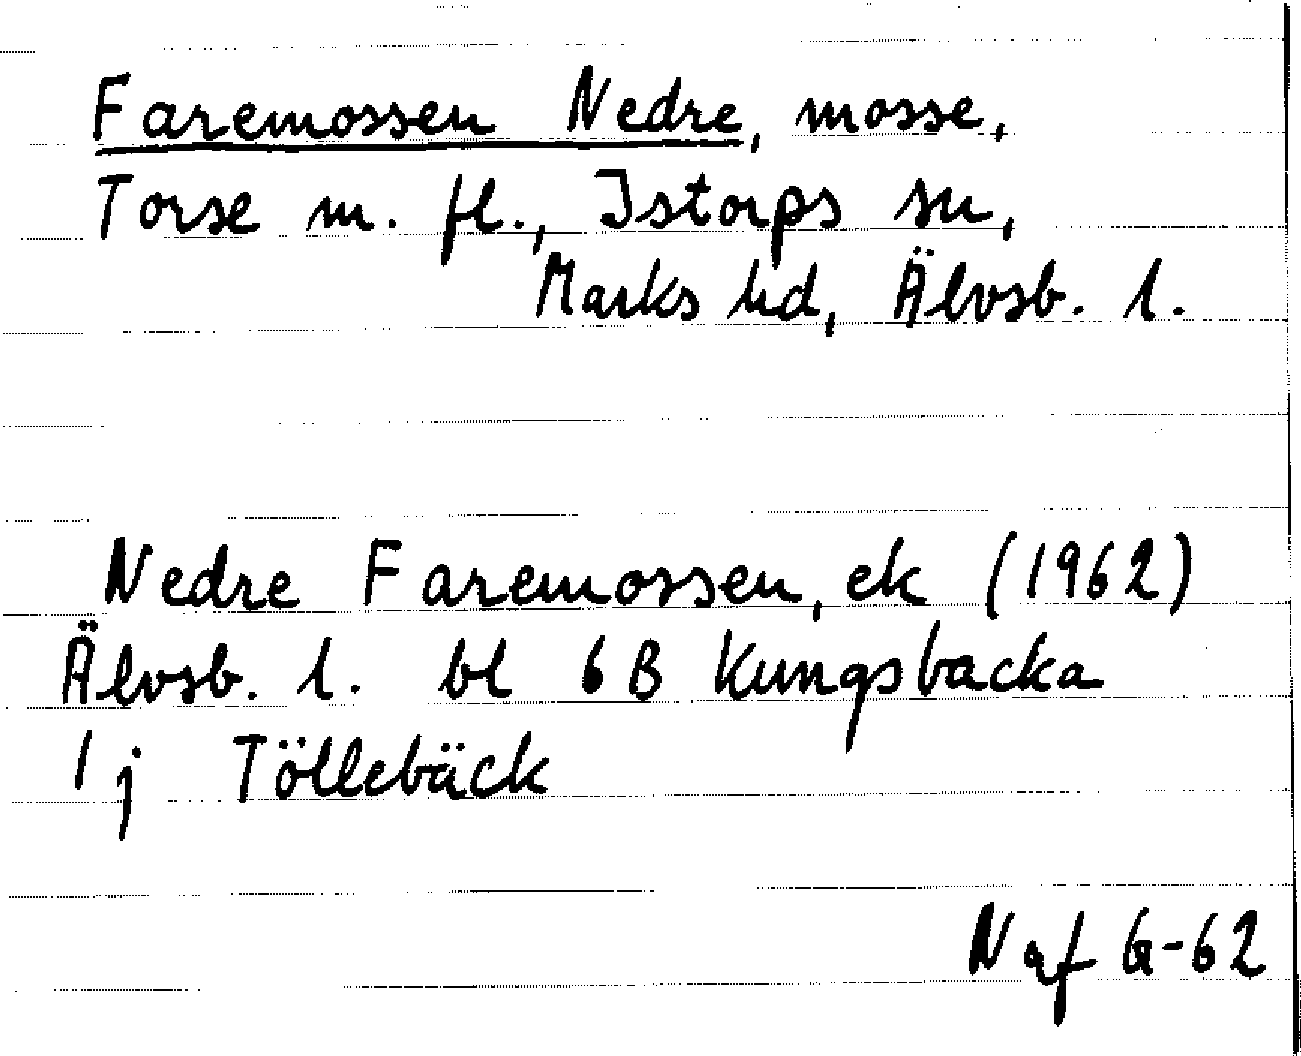 Faremossen Nedre, mosse,
Torse m. fl., Istorps sn,
Marks hd, Älvsb. l.
Nedre Faremossen, ek (1962)
Älvsb. l. bl 6 B Kungsbacka
1 j Töllebäck
Naf G-62